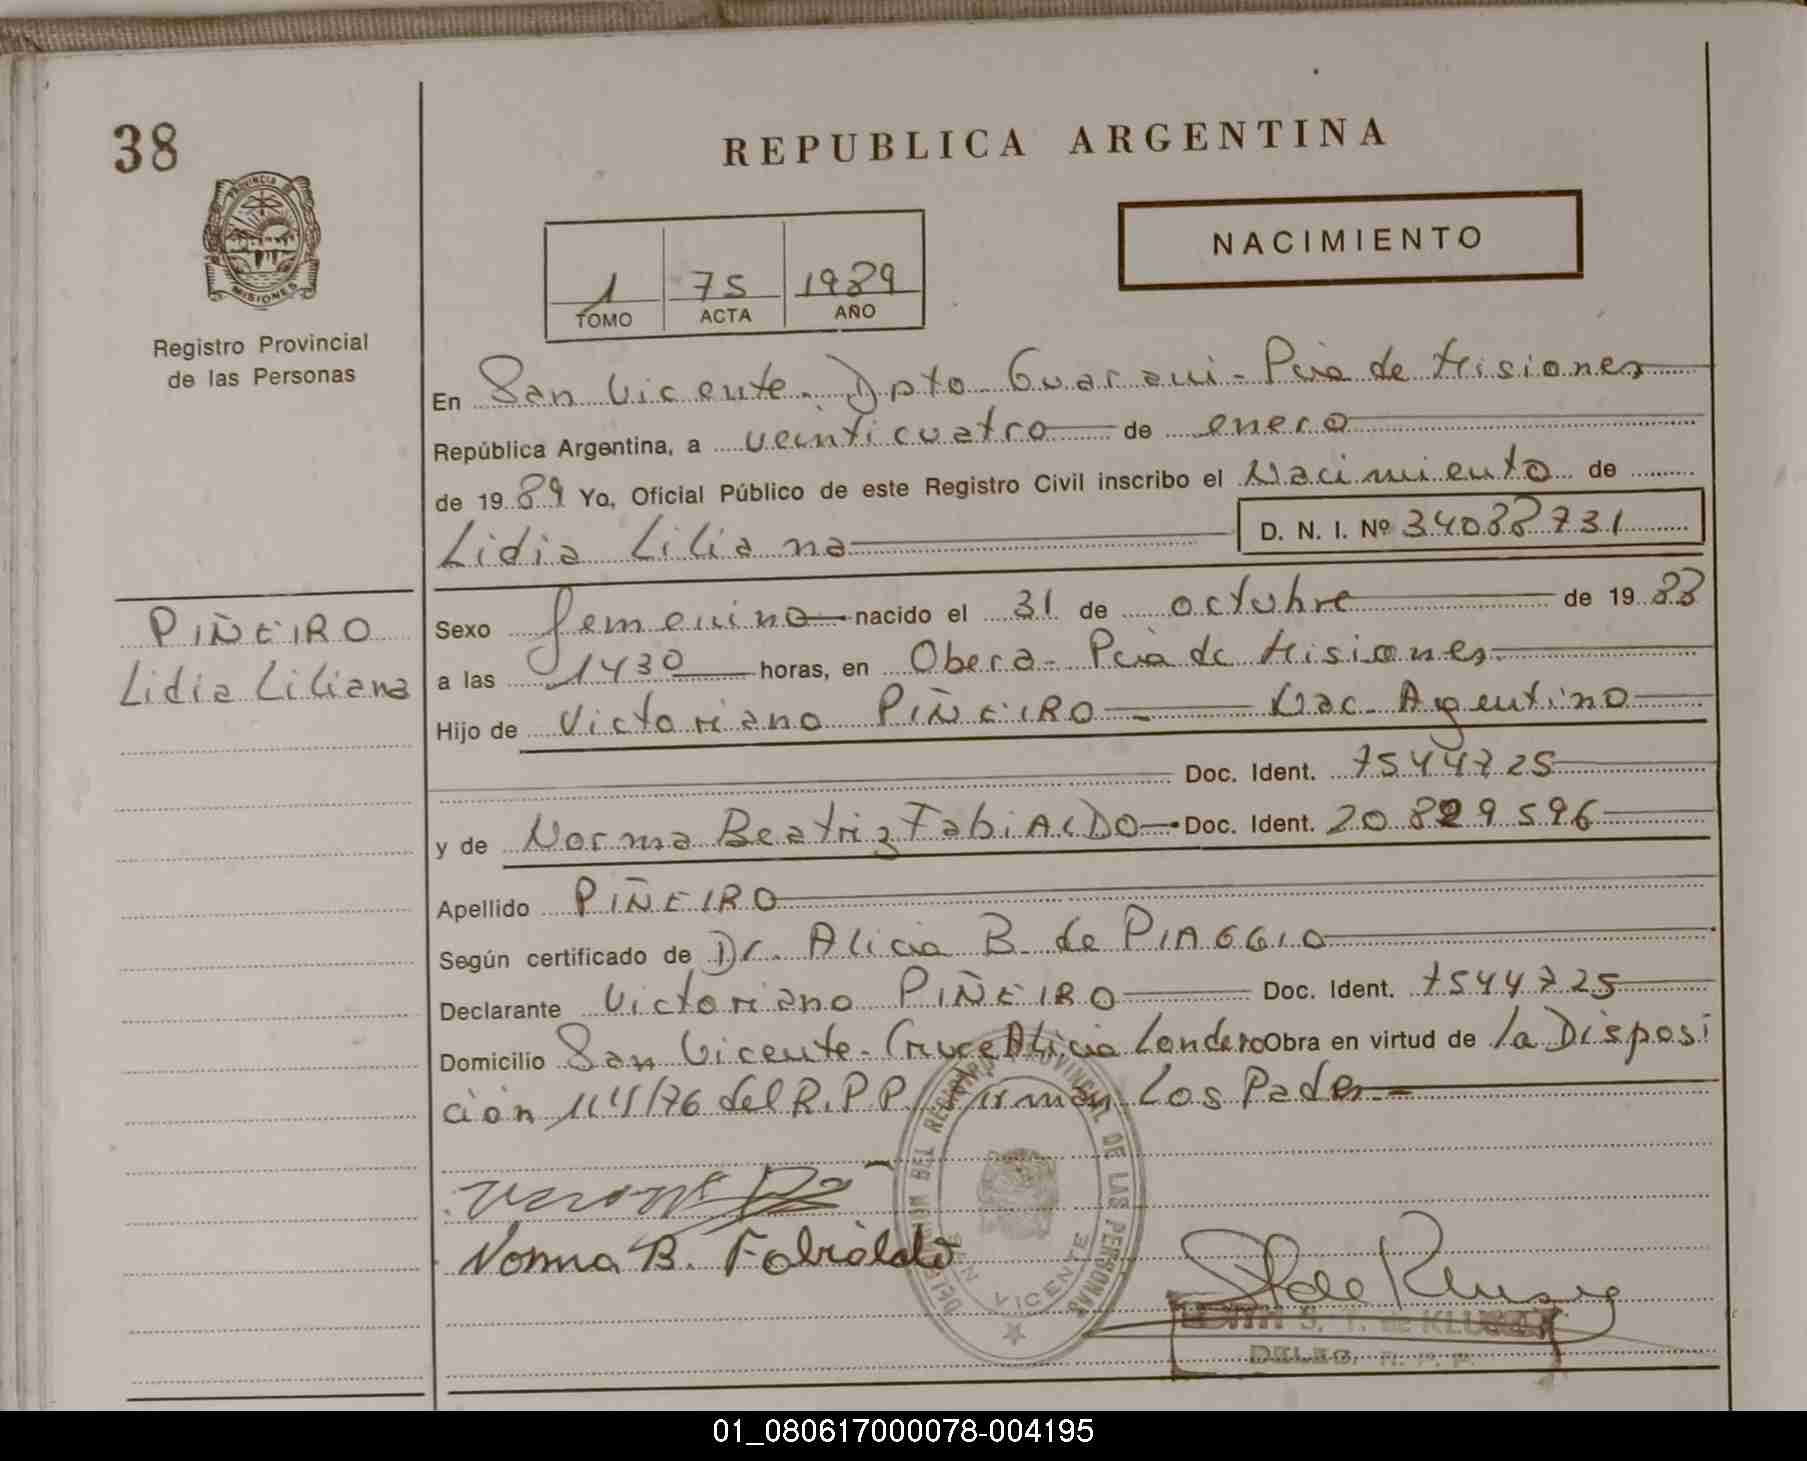 38
REPUBLICA ARGENTINA
PROVINCIA DE
MISIONES
Registro Provincial
de las Personas
NACIMIENTO
1 75 1989
TOMO ACTA AÑO
En San Vicente. Dpto Guarani - Pcia de Misiones
República Argentina, a veinticuatro de enero
de 1989 Yo, Oficial Público de este Registro Civil inscribo el Nacimiento de
Lidia Liliana D. N. I. Nº 34088731
PIÑEIRO
Lidia Liliana
Sexo femenino nacido el 31 de octubre de 1988
a las 1430 horas, en Obera - Pcia de Misiones
Hijo de Victoriano PIÑEIRO - Nac. Argentino
Doc. Ident. 7544725
y de Norma Beatriz FabiALDO Doc. Ident. 20.829.596
Apellido PIÑEIRO
Según certificado de Dr. Alicia B. de PIAGGIO
Declarante Victoriano PIÑEIRO Doc. Ident. 7544725
Domicilio San Vicente - Cruce Alicia Londero Obra en virtud de la Disposi
ción 114/76 del R.P.P. Firman Los Padres.-
Norma B. Fabialdo
DELEGACION DEL REGISTRO PROVINCIAL DE LAS PERSONAS
SAN VICENTE
S. T. de KLUSA
DELEG. R. P. P.
01_080617000078-004195